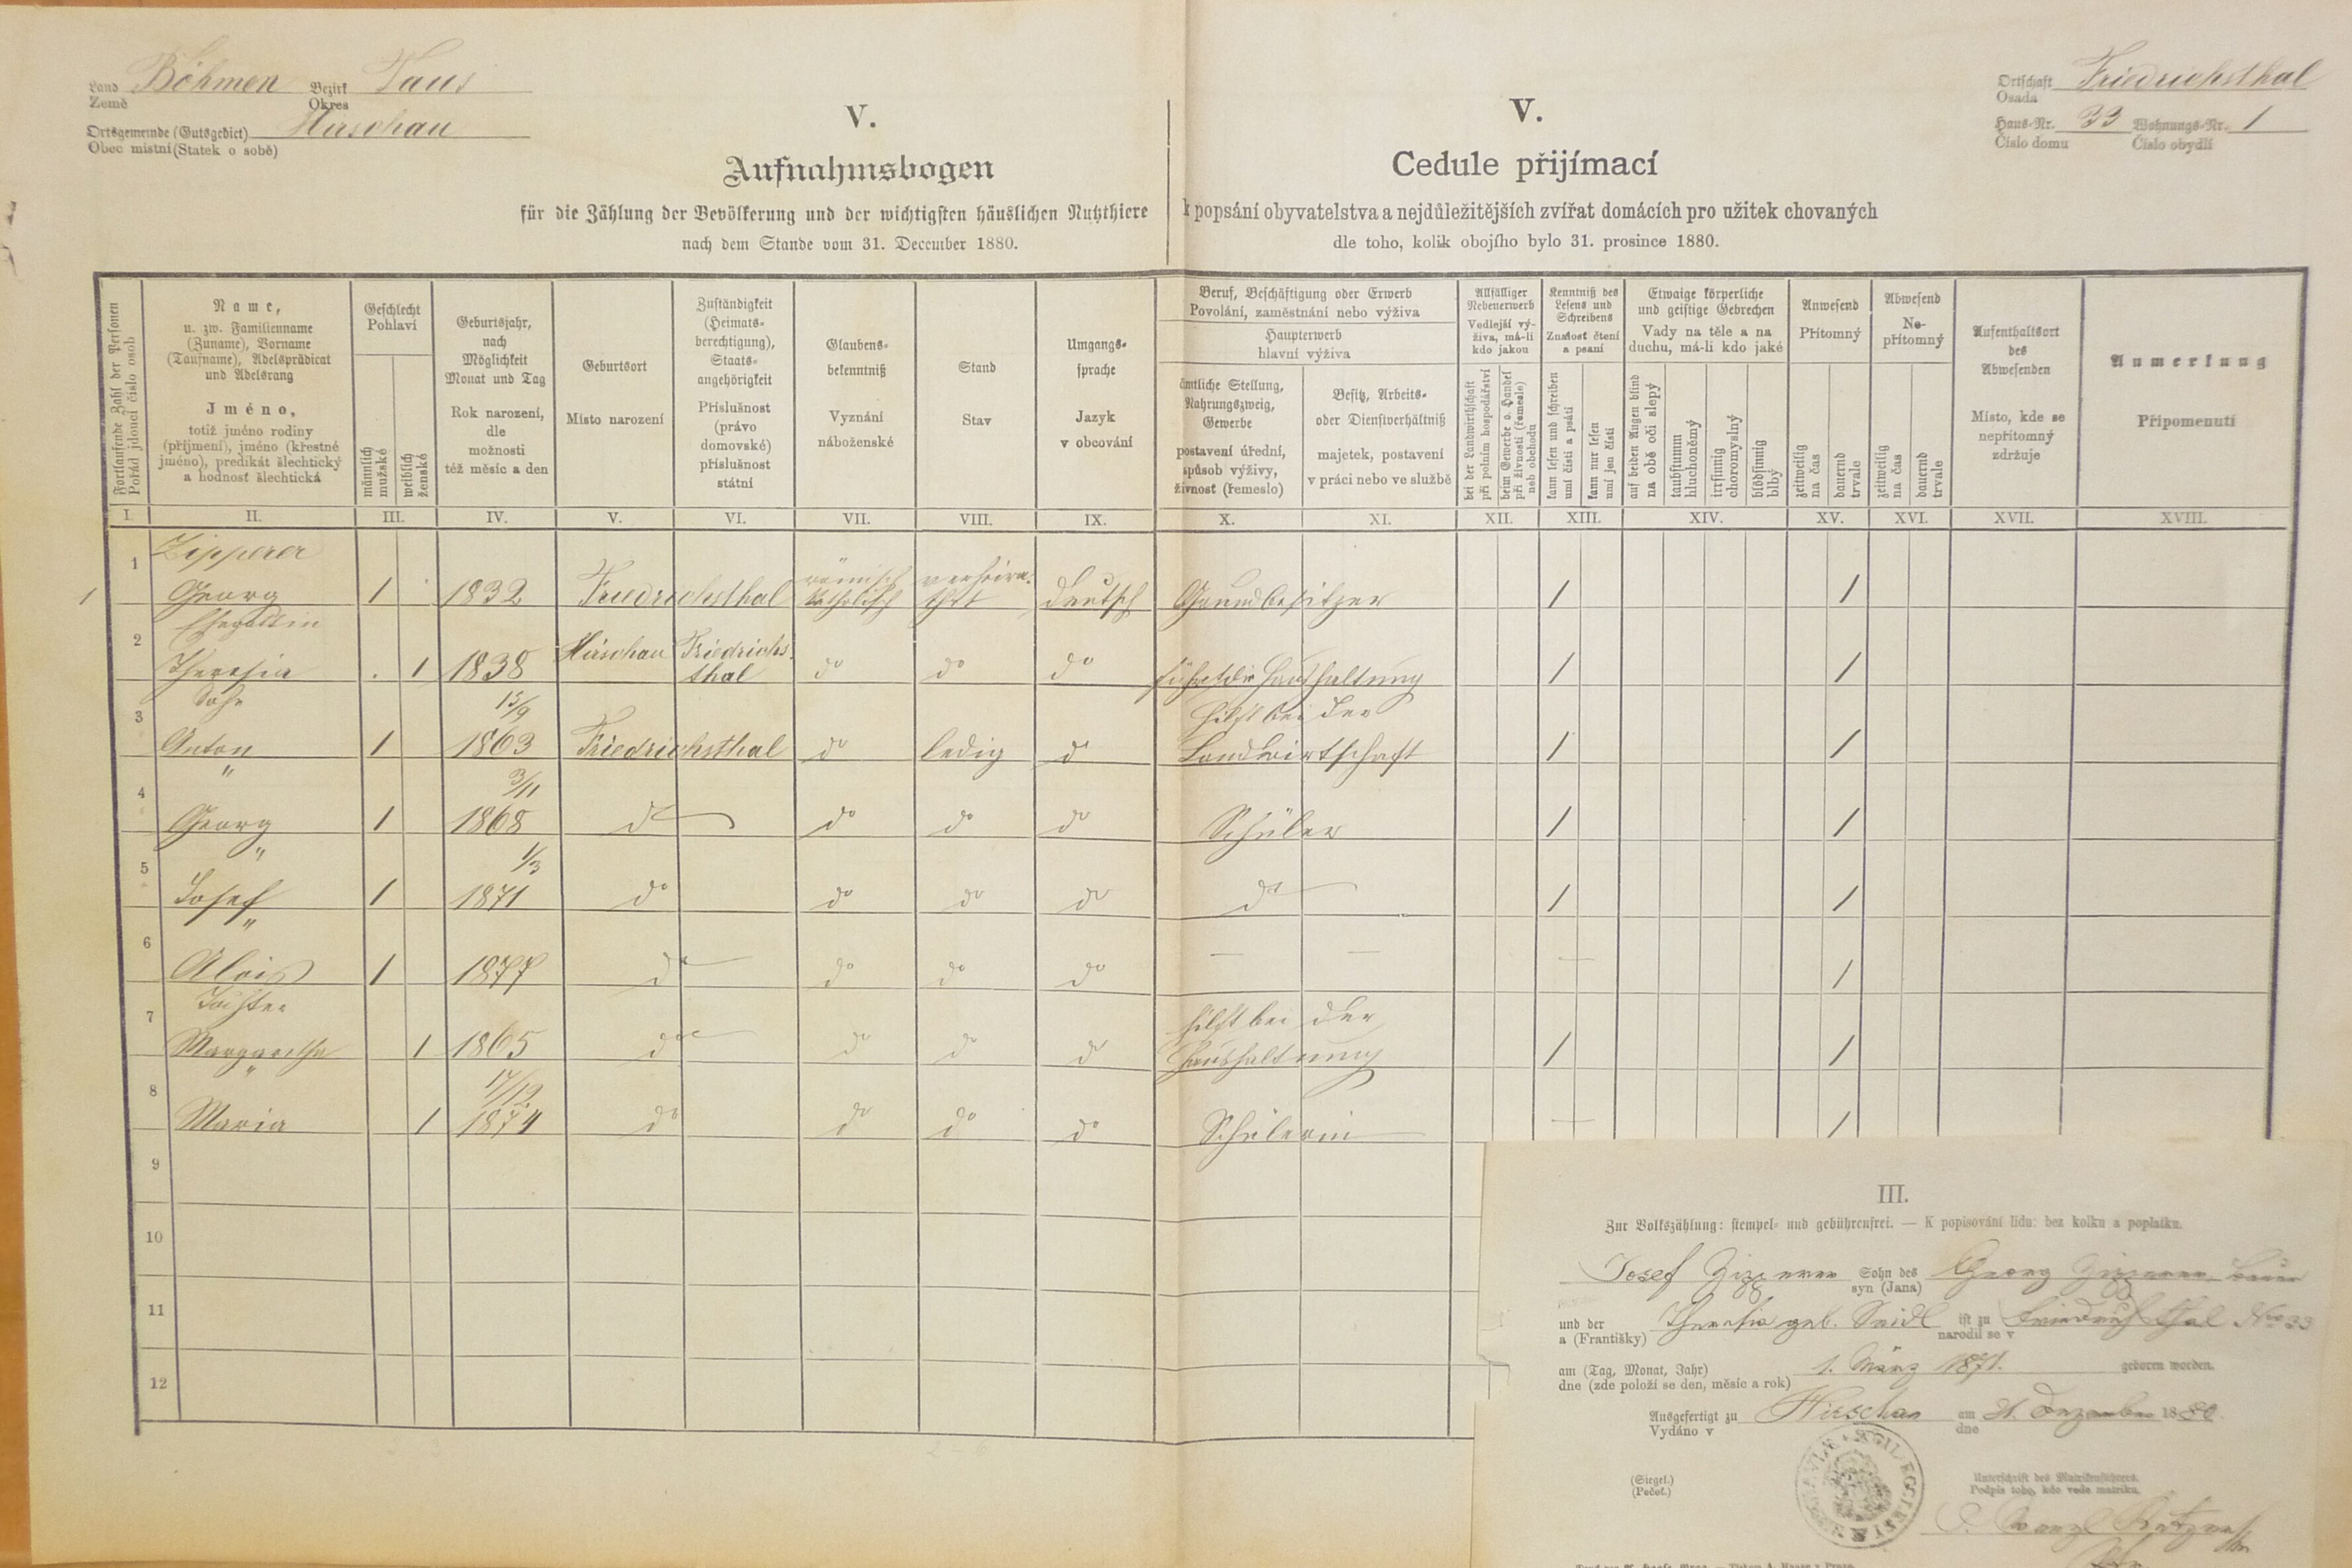 Land Böhmen Bezirk Taus
Země Okres
Ortsgemeinde (Gutsgebiet) Hirschau
Obec místní (Statek o sobě)
V.
Aufnahmsbogen
für die Zählung der Bevölkerung und der wichtigsten häuslichen Nutzthiere
nach dem Stande vom 31. December 1880.
V.
Cedule přijímací
k popsání obyvatelstva a nejdůležitějších zvířat domácích pro užitek chovaných
dle toho, kolik obojího bylo 31. prosince 1880.
Ortschaft Friedrichsthal
Osada
Haus-Nr. 33 Wohnungs-Nr. 1
Číslo domu Číslo obydlí
Fortlaufende Zahl der Personen
Pořád jdoucí číslo osob
Name,
u. zw. Familienname
(Zuname), Vorname
(Taufname), Adelsprädicat
und Adelsrang
Jméno,
totiž jméno rodiny
(příjmení), jméno (křestné
jméno), predikát šlechtický
a hodnosť šlechtická
Geschlecht
Pohlaví
männlich
mužské
weiblich
ženské
Geburtsjahr,
nach
Möglichkeit
Monat und Tag
Rok narození,
dle
možnosti
též měsíc a den
Geburtsort
Místo narození
Zuständigkeit
(Heimats-
berechtigung),
Staats-
angehörigkeit
Příslušnost
(právo
domovské)
příslušnost
státní
Glaubens-
bekenntniß
Vyznání
náboženské
Stand
Stav
Umgangs-
sprache
Jazyk
v obcování
Beruf, Beschäftigung oder Erwerb
Povolání, zaměstnání nebo výživa
Haupterwerb
hlavní výživa
ämtliche Stellung,
Nahrungszweig,
Gewerbe
postavení úřední,
spůsob výživy,
živnost (řemeslo)
Besitz, Arbeits-
oder Dienstverhältniß
majetek, postavení
v práci nebo ve službě
Allfälliger
Nebenerwerb
Vedlejší vý-
živa, má-li
kdo jakou
bei der Landwirthschaft
při polním hospodářství
beim Gewerbe o. Handel
při živnosti (řemesle)
neb obchodu
Kenntniß des
Lesens und
Schreibens
Znalost čtení
a psaní
kann lesen und schreiben
umí čísti a psáti
kann nur lesen
umí jen čísti
Etwaige körperliche
und geistige Gebrechen
Vady na těle a na
duchu, má-li kdo jaké
auf beiden Augen blind
na obě oči slepý
taubstumm
hluchoněmý
irrsinnig
choromyslný
blödsinnig
blbý
Anwesend
Přítomný
zeitweilig
na čas
dauernd
trvale
Abwesend
Ne-
přítomný
zeitweilig
na čas
dauernd
trvale
Aufenthaltsort
des
Abwesenden
Místo, kde se
nepřítomný
zdržuje
Anmerkung
Připomenutí
I. II. III. IV. V. VI. VII. VIII. IX. X. XI. XII. XIII. XIV. XV. XVI. XVII. XVIII.
Zipperer
1 Georg 1 1832 Friedrichsthal römisch katholisch verheira-thet deutsch Grundbesitzer / /
Ehegattin
2 Theresia . 1 1838 Hirschau Friedrichs-thal do do do führt die Haushaltung / /
Sohn
3 Anton 1 15/9 1863 Friedrichsthal do ledig do hilft bei der Landwirtschaft / /
4 " Georg 1 3/11 1868 do do do do Schüler / /
5 " Josef 1 1/3 1871 do do do do do / /
6 " Alois 1 1877 do do do do — — — /
Tochter
7 Margaretha 1 1865 do do do do hilft bei der Haushaltung / /
8 " Maria 1 17/12 1874 do do do do Schülerin — /
9
10
11
12
III.
Zur Volkszählung: stempel- und gebührenfrei. — K popisování lidu: bez kolku a poplatku.
Josef Zipperer Sohn des Georg Zipperer Bauer
syn (Jana)
und der Theresia geb. Seidl ist zu Friedrichsthal Nro 33
a (Františky) narodil se v
am (Tag, Monat, Jahr) 1. März 1871. geboren worden.
dne (zde položí se den, měsíc a rok)
Ausgefertigt zu Hirschau am 31. Dezember 1880.
Vydáno v dne
(Siegel.)
(Pečeť.)
Unterschrift des Matrikenführers.
Podpis toho, kdo vede matriku.